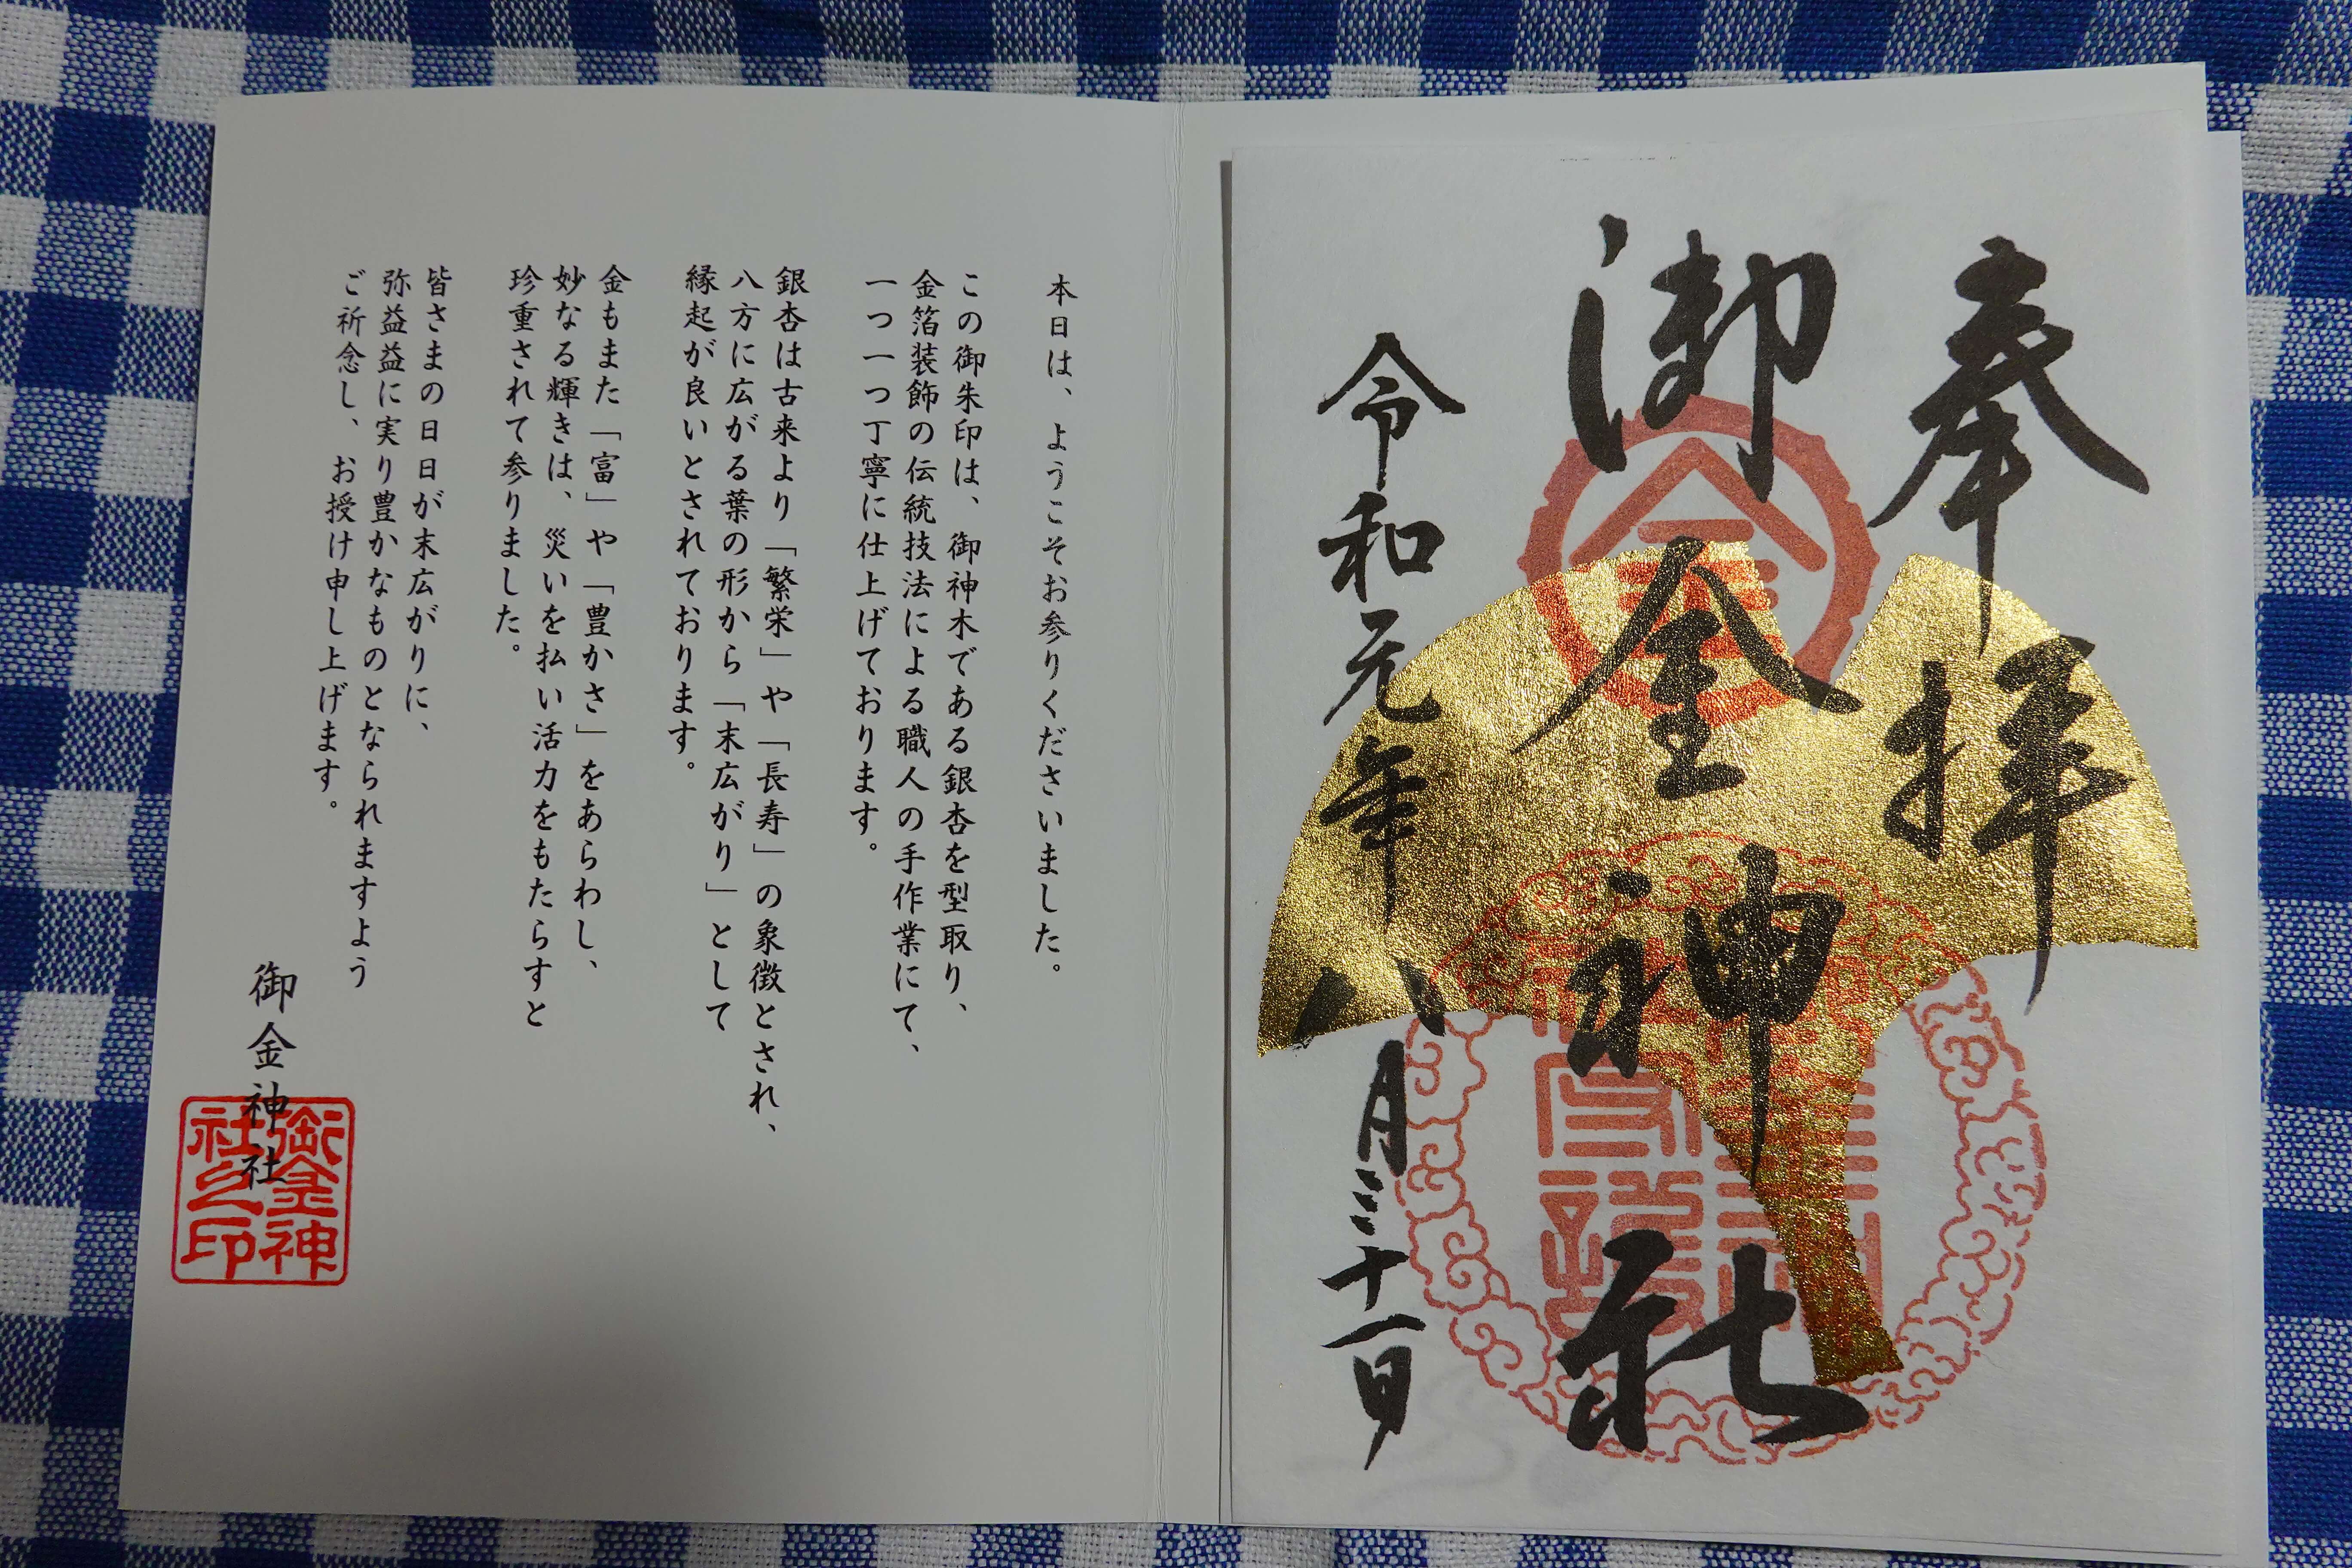 奉拝
御金神社
令和元年八月三十一日
本日は、ようこそお参りくださいました。
この御朱印は、御神木である銀杏を型取り、
金箔装飾の伝統技法による職人の手作業にて、
一つ一つ丁寧に仕上げております。
銀杏は古来より「繁栄」や「長寿」の象徴とされ、
八方に広がる葉の形から「末広がり」として
縁起が良いとされております。
金もまた「富」や「豊かさ」をあらわし、
妙なる輝きは、災いを払い活力をもたらすと
珍重されて参りました。
皆さまの日日が末広がりに、
弥益益に実り豊かなものとなられますよう
ご祈念し、お授け申し上げます。
御金神社
御金神
社之印